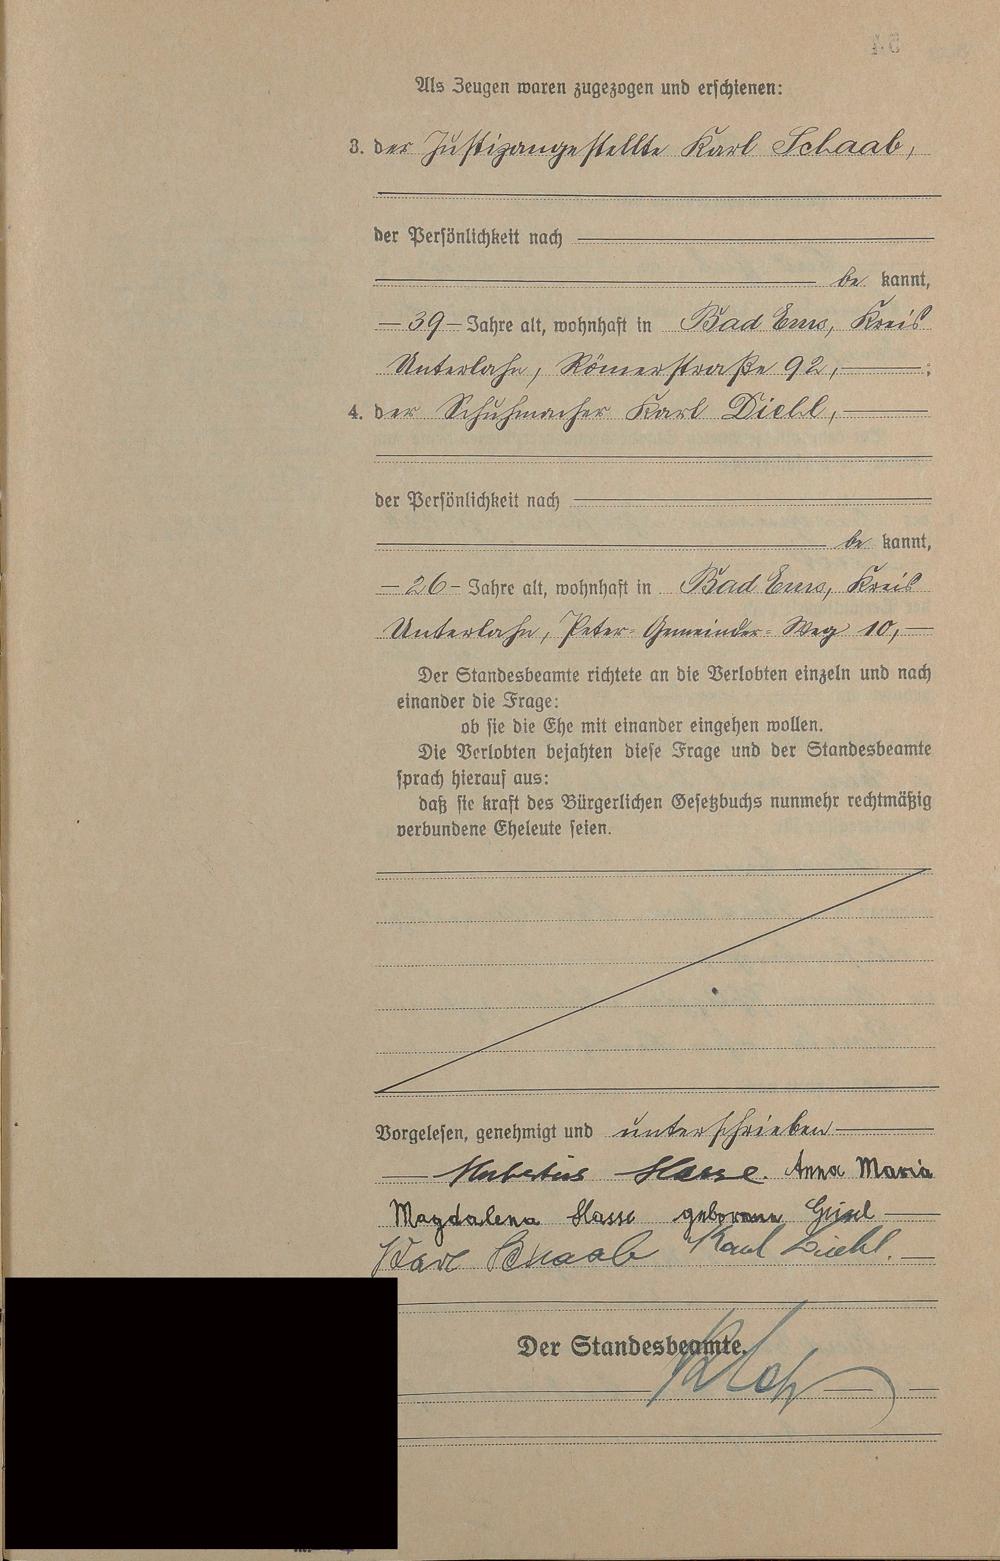 Als Zeugen waren zugezogen und erschienen:
3. der Justizangestellte Karl Schaab,
der Persönlichkeit nach
be kannt,
— 39 — Jahre alt, wohnhaft in Bad Ems, Kreis
Unterlahn, Römerstraße 92, — ;
4. der Schuhmacher Karl Diehl, —
der Persönlichkeit nach
be kannt,
— 26 — Jahre alt, wohnhaft in Bad Ems, Kreis
Unterlahn, Peter-Gemeinder-Weg 10, —
Der Standesbeamte richtete an die Verlobten einzeln und nach
einander die Frage:
ob sie die Ehe mit einander eingehen wollen.
Die Verlobten bejahten diese Frage und der Standesbeamte
sprach hierauf aus:
daß sie kraft des Bürgerlichen Gesetzbuchs nunmehr rechtmäßig
verbundene Eheleute seien.
Vorgelesen, genehmigt und unterschrieben —
— Hubertus Hasse. Anna Maria
Magdalena Hasse geborene —
Karl Schaab Karl Diehl. —
Der Standesbeamte.